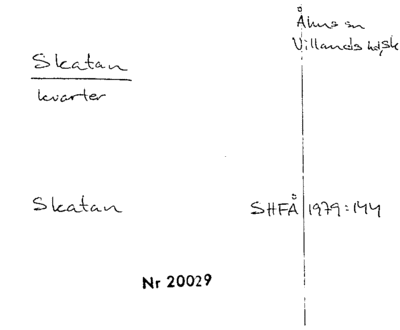 Åhus sn
Villands hd, Sk
Skatan
kvarter
Skatan SHFÅ 1979:144
Nr 20029